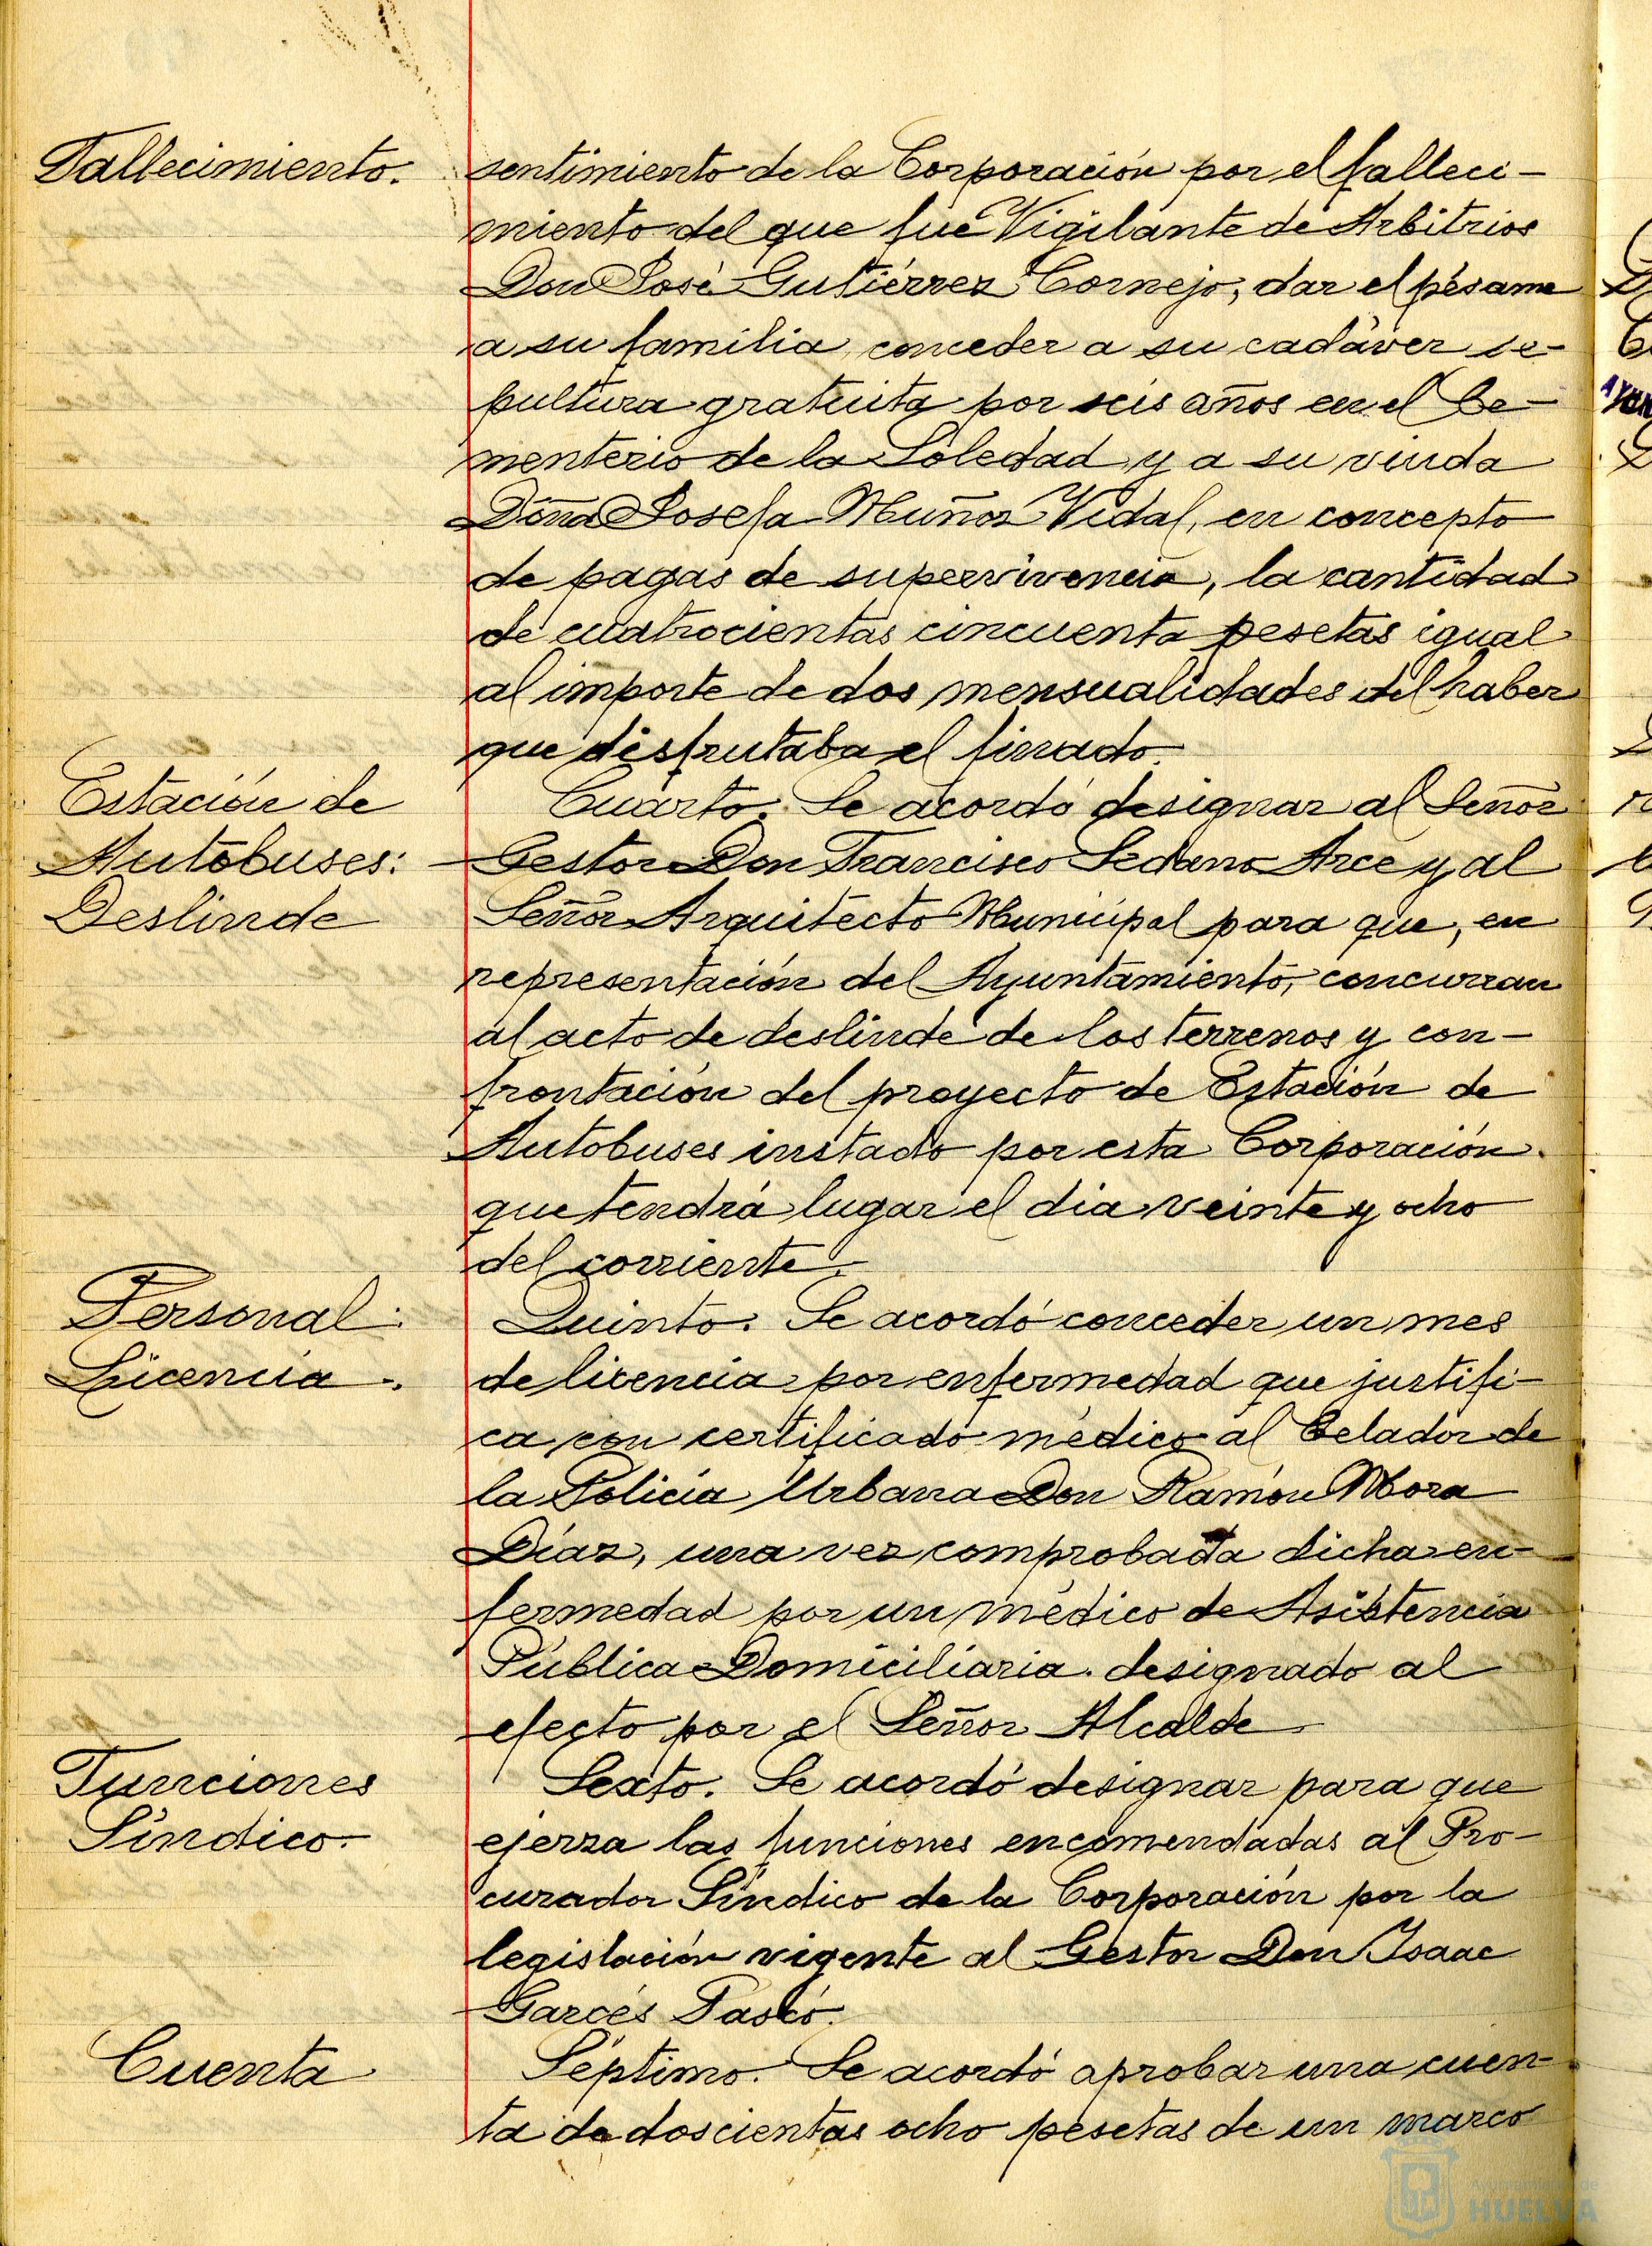 Fallecimiento.
sentimiento de la Corporación por el falleci-
miento del que fue Vigilante de Arbitrios
Don José Gutiérrez Cornejo, dar el pésame
a su familia, conceder a su cadáver se-
pultura gratuita por seis años en el Ce-
menterio de la Soledad y a su viuda
Doña Josefa Muñoz Vidal, en concepto
de pagas de supervivencia, la cantidad
de cuatrocientas cincuenta pesetas igual
al importe de dos mensualidades del haber
que disfrutaba el finado.
Estación de
Autobuses:
Deslinde
Cuarto. Se acordó designar al Señor
Gestor Don Francisco Sedano Arce y al
Señor Arquitecto Municipal para que, en
representación del Ayuntamiento, concurran
al acto de deslinde de los terrenos y con-
frontación del proyecto de Estación de
Autobuses instado por esta Corporación.
que tendrá lugar el dia veinte y ocho
del corriente.
Personal:
Licencia.
Quinto. Se acordó conceder un mes
de licencia por enfermedad que justifi-
ca con certificado médico al Celador de
la Policía Urbana Don Ramón Mora
Díaz, una vez comprobada dicha en-
fermedad por un médico de Asistencia
Pública Domiciliaria designado al
efecto por el Señor Alcalde
Funciones
Síndico.
Sexto. Se acordó designar para que
ejerza las funciones encomendadas al Pro-
curador Síndico de la Corporación por la
legislación vigente al Gestor Don Isaac
Garcés
Cuenta
Séptimo. Se acordó aprobar una cuen-
ta de doscientas ocho pesetas de un marco
Ayuntamiento de
HUELVA